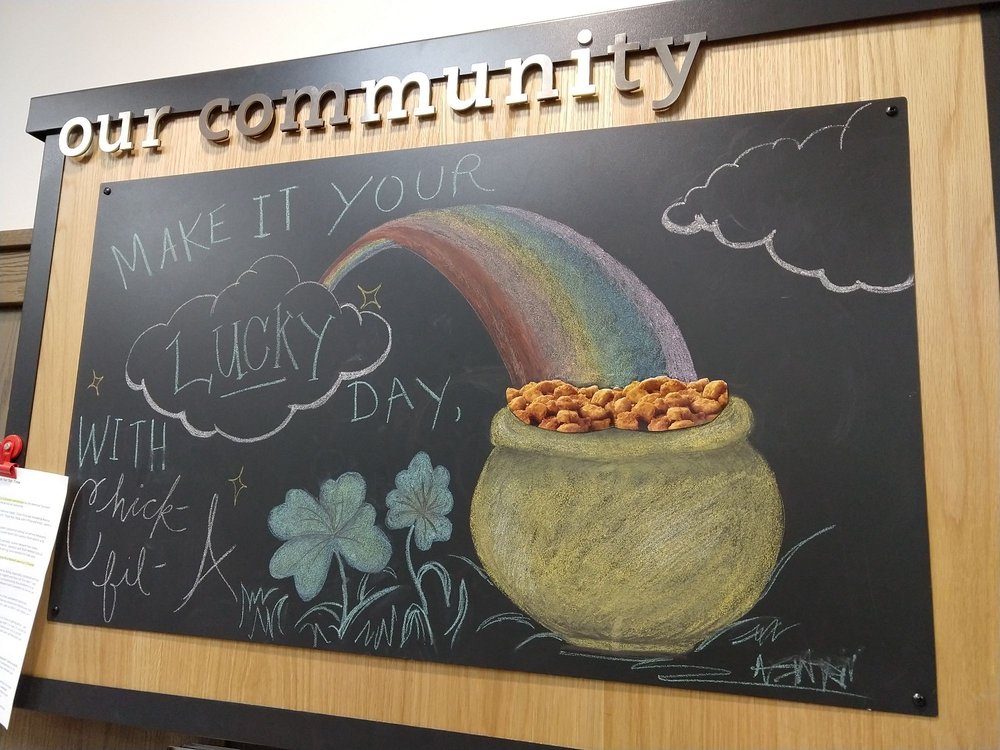 our community
MAKE IT YOUR
LUCKY
DAY,
WITH
Chick-
fil-A